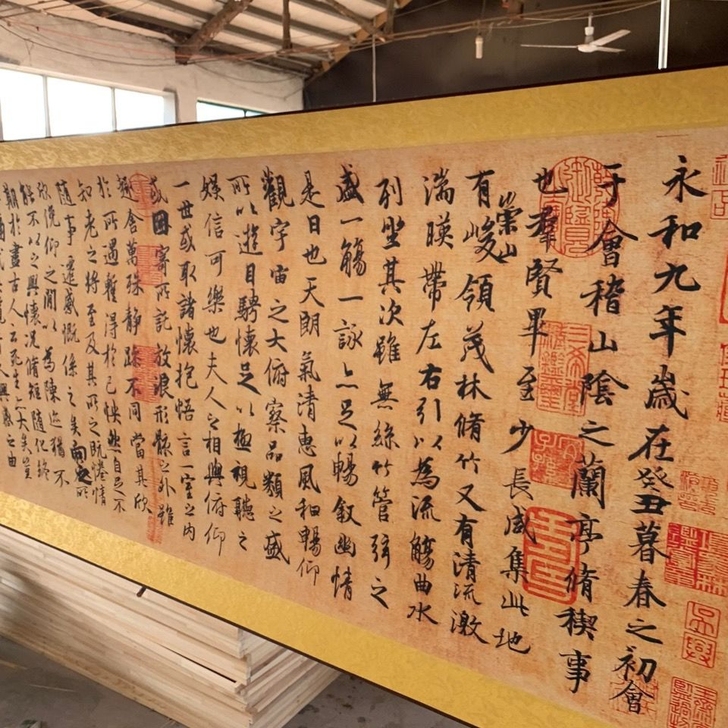 永和九年歲在癸丑暮春之初會
于會稽山陰之蘭亭脩稧事
也羣賢畢至少長咸集此地
有崇山峻領茂林脩竹又有清流激
湍暎帶左右引以為流觴曲水
列坐其次雖無絲竹管弦之
盛一觴一詠亦足以暢叙幽情
是日也天朗氣清惠風和暢仰
觀宇宙之大俯察品類之盛
所以遊目騁懷足以極視聽之
娛信可樂也夫人之相與俯仰
一世或取諸懷抱悟言一室之內
或因寄所託放浪形骸之外雖
趣舍萬殊靜躁不同當其欣
於所遇暫得於己怏然自足不
知老之將至及其所之既惓情
隨事遷感慨係之矣向之所
欣俛仰之閒以為陳迹猶不
能不以之興懷況脩短隨化終
期於盡古人云死生亦大矣豈